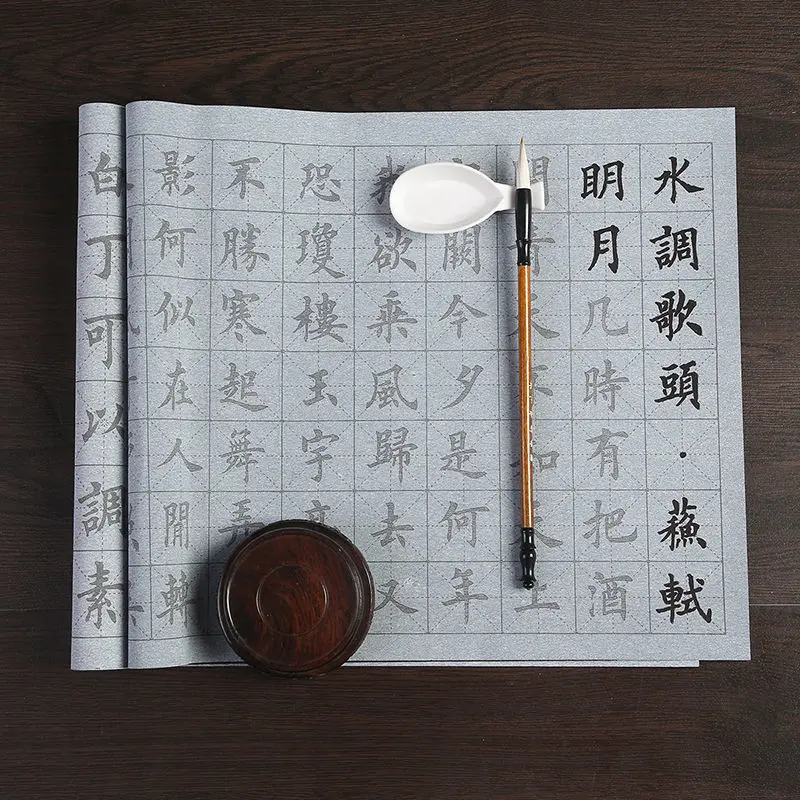 水調歌頭·蘇軾
明月几時有把酒
問青天不知天上
闕今夕是何年
我欲乘風歸去又
恐瓊樓玉宇高
不勝寒起舞弄
影何似在人閒轉
白丁可以調素